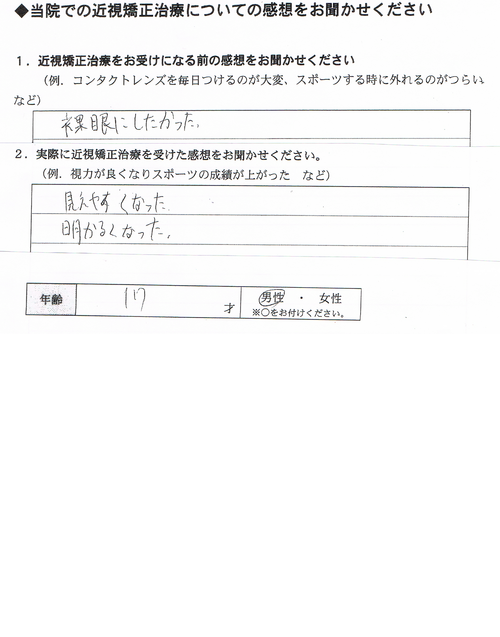 ◆当院での近視矯正治療についての感想をお聞かせください
１．近視矯正治療をお受けになる前の感想をお聞かせください
（例．コンタクトレンズを毎日つけるのが大変、スポーツする時に外れるのがつらい
など）
裸眼にしたかった。
２．実際に近視矯正治療を受けた感想をお聞かせください。
（例．視力が良くなりスポーツの成績が上がった　など）
見えやすくなった。
明かるくなった。
年齢　17　才　男性　・　女性
※○をお付けください。